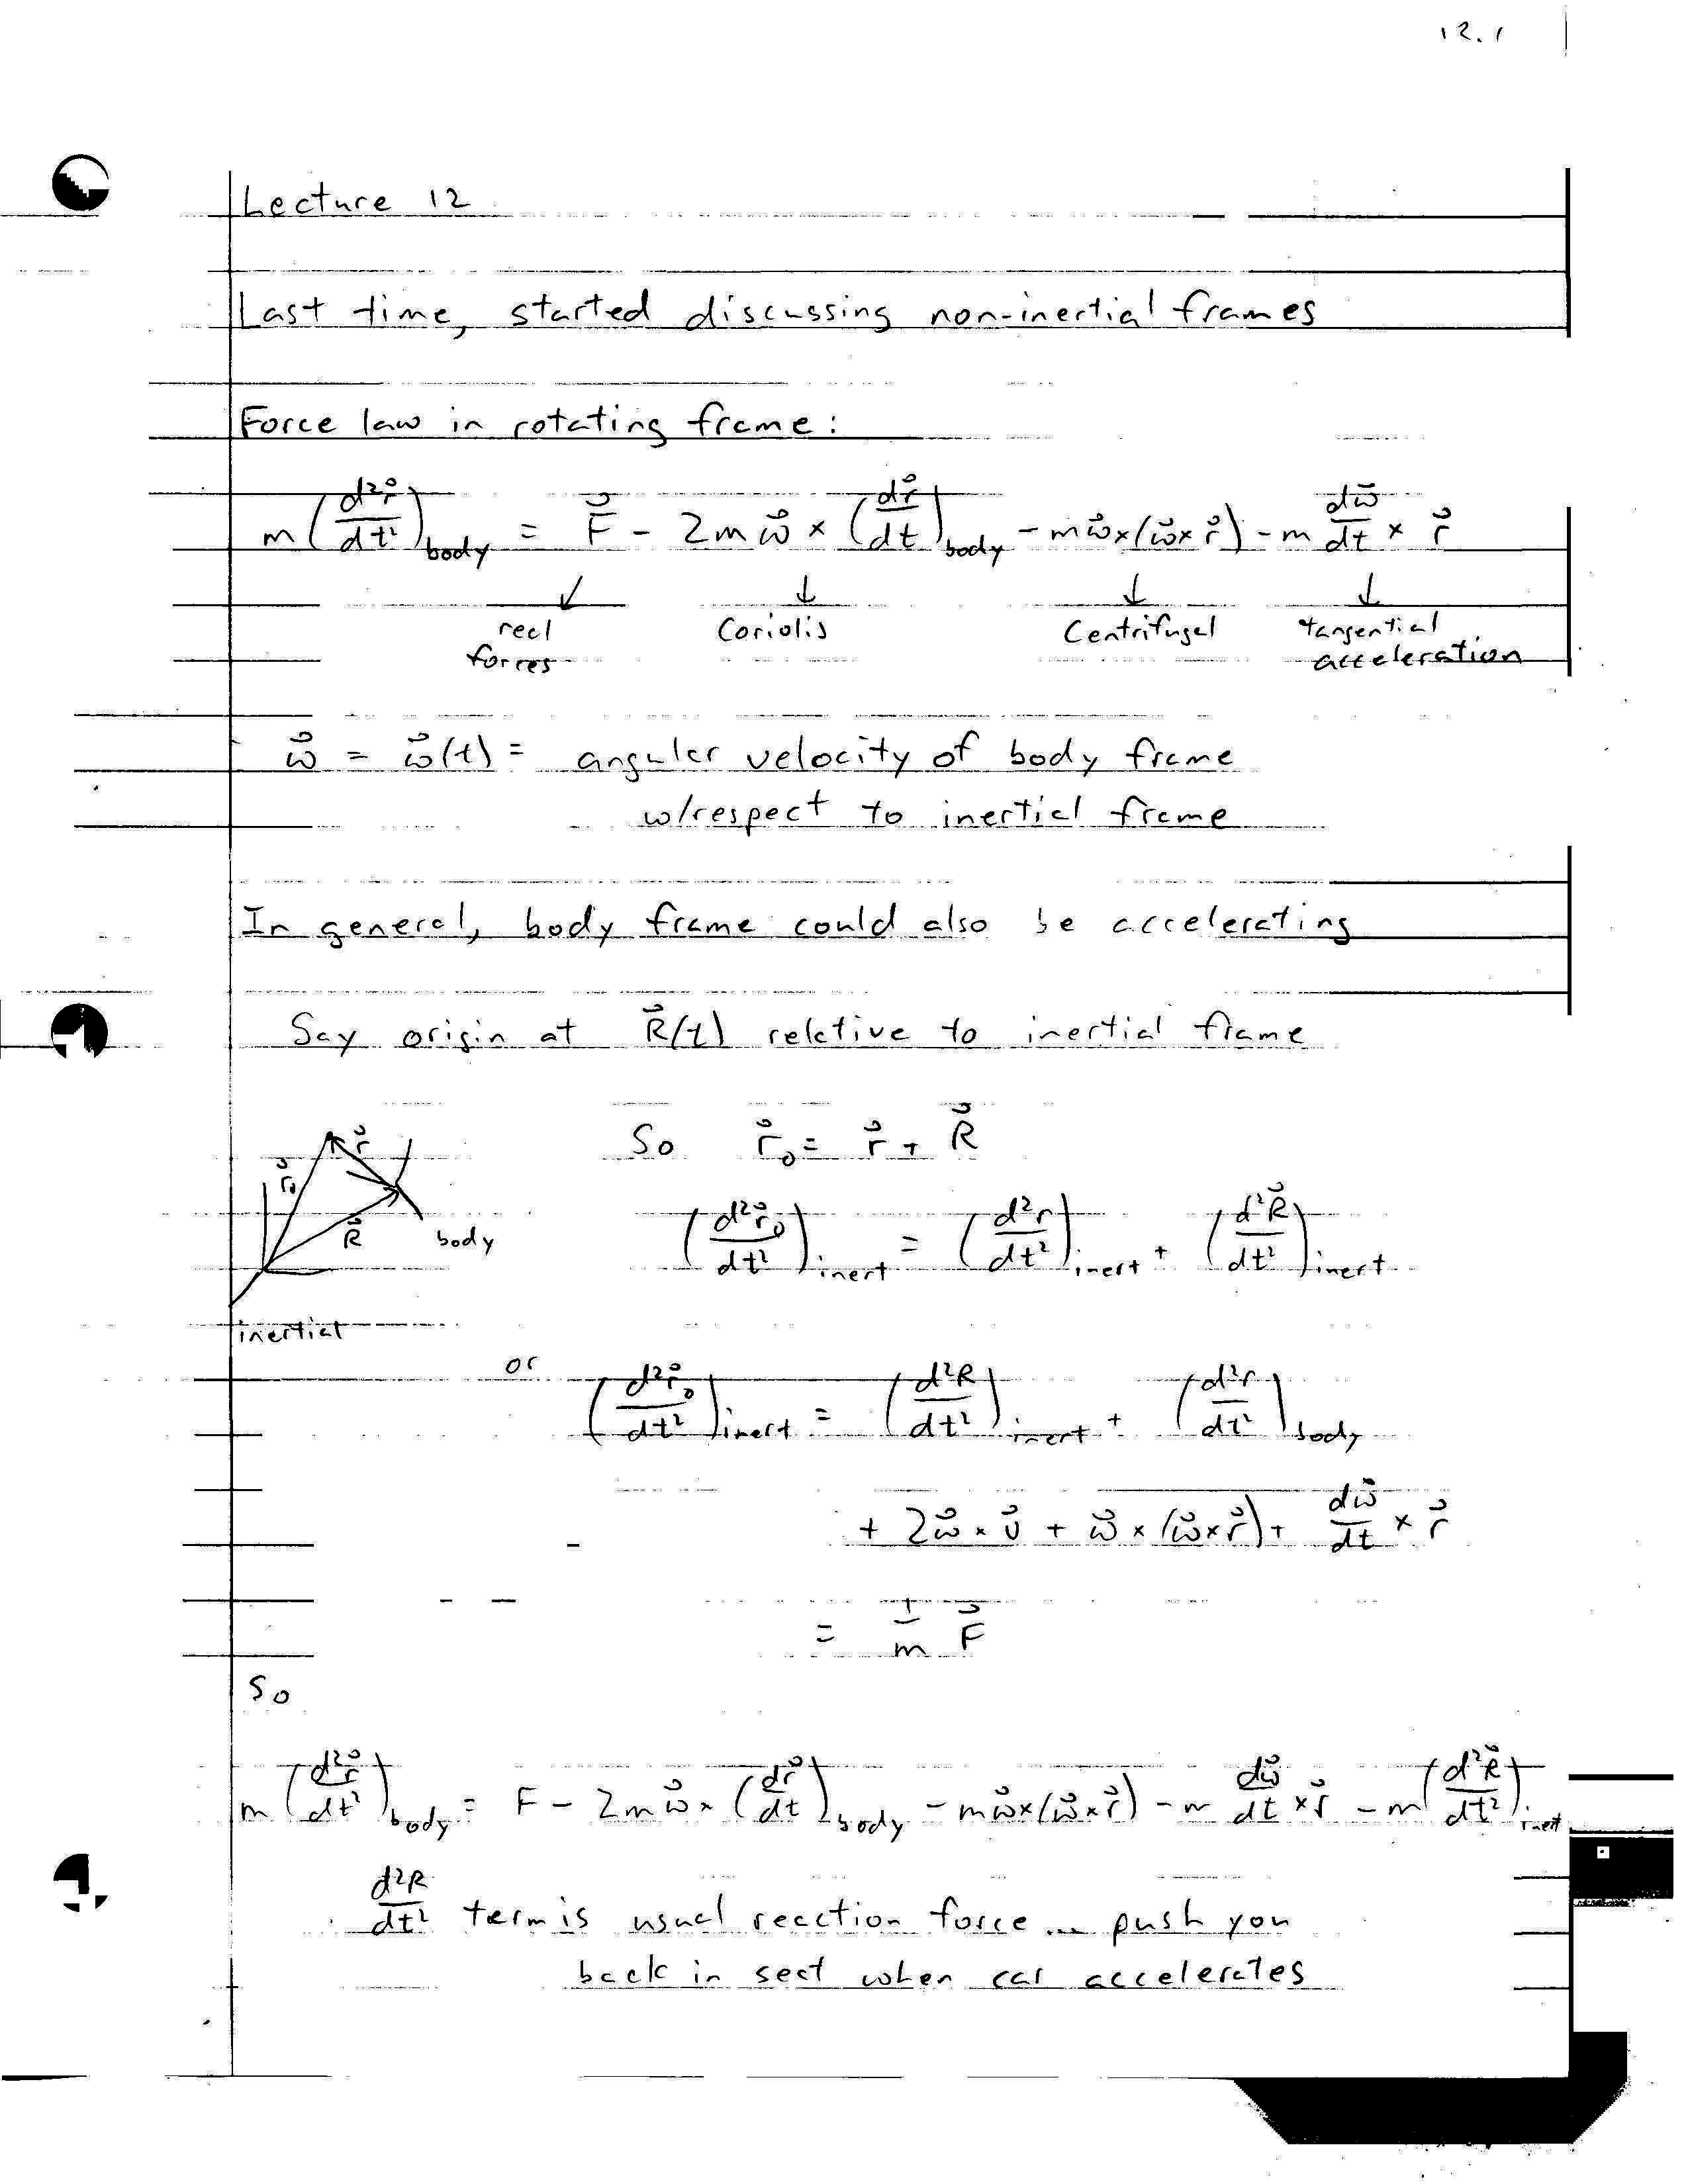 12.1
Lecture 12
Last time, started discussing non-inertial frames
Force law in rotating frame:
m(d²r⃗/dt²)body = F⃗ - 2mω⃗ × (dr⃗/dt)body - mω⃗×(ω⃗×r⃗) - m dω⃗/dt × r⃗
↓ ↓ ↓ ↓
real Coriolis Centrifugal tangential
forces acceleration
ω⃗ = ω⃗(t) = angular velocity of body frame
w/respect to inertial frame
In general, body frame could also be accelerating
Say origin at R⃗(t) relative to inertial frame
So r⃗₀ = r⃗ + R⃗
r⃗
r⃗₀
R⃗
body
(d²r⃗₀/dt²)inert = (d²r/dt²)inert + (d²R⃗/dt²)inert
inertial
or
(d²r⃗₀/dt²)inert = (d²R/dt²)inert + (d²r/dt²)body
+ 2ω⃗×v⃗ + ω⃗×(ω⃗×r⃗) + dω⃗/dt × r⃗
= 1/m F⃗
So
m(d²r⃗/dt²)body = F - 2mω⃗×(dr⃗/dt)body - mω⃗×(ω⃗×r⃗) - m dω⃗/dt × r⃗ - m(d²R⃗/dt²)inert
d²R/dt² term is usual reaction force ... push you
back in seat when car accelerates